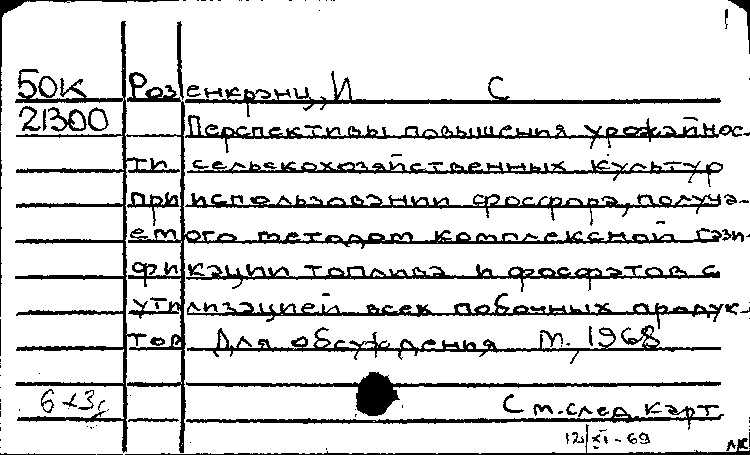 1
50К Розенкранц, И С
21300 Перспективы повышения урожайнос-
ти сельскохозяйственных культур
при использовании фосфора, получа-
емого методом комплексной гази-
фикации топлива и фосфатов с
утилизацией всех побочных продук-
тов Для обсуждения М., 1968
См. след карт
12/XI-69